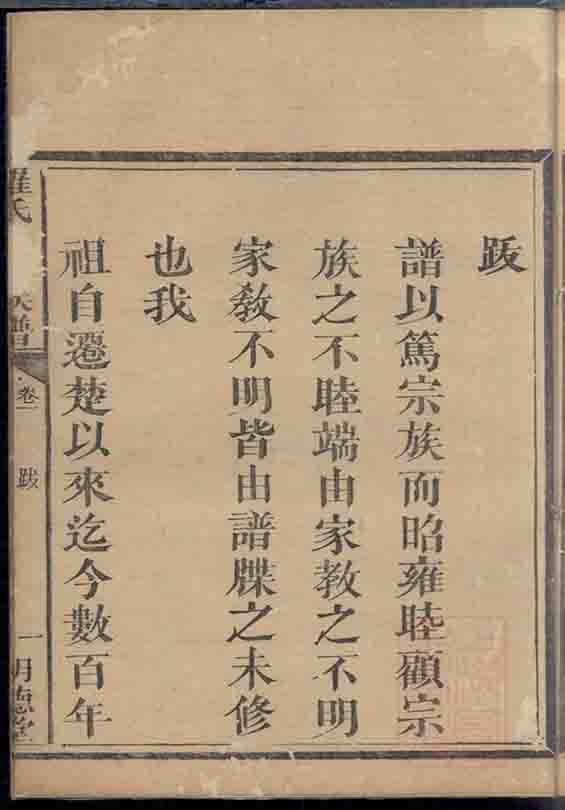 跋
譜以篤宗族而昭雍睦顧宗
族之不睦端由家教之不明
家教不明皆由譜牒之未修
也我
祖自遷楚以來迄今數百年
羅氏
譜
卷一
跋
一
明德堂